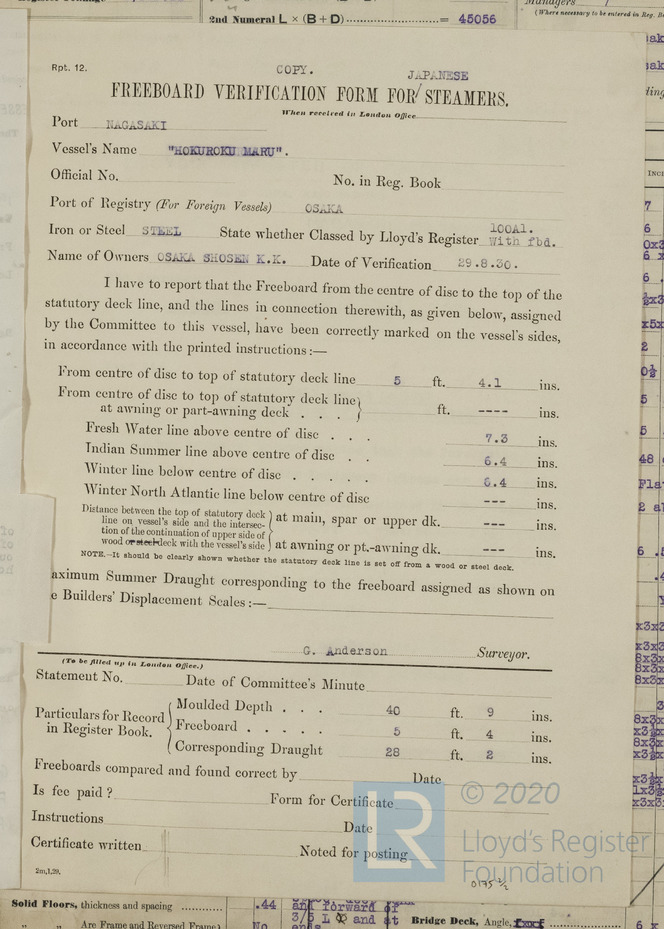 2nd Numeral L × (B + D) = 45056
(Where necessary to be entered in Reg. B
Rpt. 12.
COPY.
JAPANESE
FREEBOARD VERIFICATION FORM FOR/ STEAMERS.
When received in London Office
Port NAGASAKI
Vessel's Name "HOKUROKU MARU".
Official No. No. in Reg. Book
Port of Registry (For Foreign Vessels) OSAKA
Iron or Steel STEEL State whether Classed by Lloyd's Register 100A1. With fbd.
Name of Owners OSAKA SHOSEN K.K. Date of Verification 29.8.30.
I have to report that the Freeboard from the centre of disc to the top of the
statutory deck line, and the lines in connection therewith, as given below, assigned
by the Committee to this vessel, have been correctly marked on the vessel's sides,
in accordance with the printed instructions:—
From centre of disc to top of statutory deck line 5 ft. 4.1 ins.
From centre of disc to top of statutory deck line
at awning or part-awning deck . . . ft. ---- ins.
Fresh Water line above centre of disc . . . 7.3 ins.
Indian Summer line above centre of disc . . 6.4 ins.
Winter line below centre of disc . . . . . 6.4 ins.
Winter North Atlantic line below centre of disc --- ins.
Distance between the top of statutory deck
line on vessel's side and the intersec-
tion of the continuation of upper side of
wood or steel deck with the vessel's side
at main, spar or upper dk. --- ins.
at awning or pt.-awning dk. --- ins.
NOTE.—It should be clearly shown whether the statutory deck line is set off from a wood or steel deck.
aximum Summer Draught corresponding to the freeboard assigned as shown on
e Builders' Displacement Scales:—
G. Anderson Surveyor.
(To be filled up in London Office.)
Statement No. Date of Committee's Minute
Particulars for Record
in Register Book.
Moulded Depth . . . 40 ft. 9 ins.
Freeboard . . . . . 5 ft. 4 ins.
Corresponding Draught 28 ft. 2 ins.
Freeboards compared and found correct by Date
Is fee paid? Form for Certificate
Instructions Date
Certificate written Noted for posting
2m,1,29.
© 2020
LR
Lloyd's Register
Foundation
Solid Floors, thickness and spacing .44
and forward of
3/5 L and at
Are Frame and Reversed Frame No
Bridge Deck, Angle,